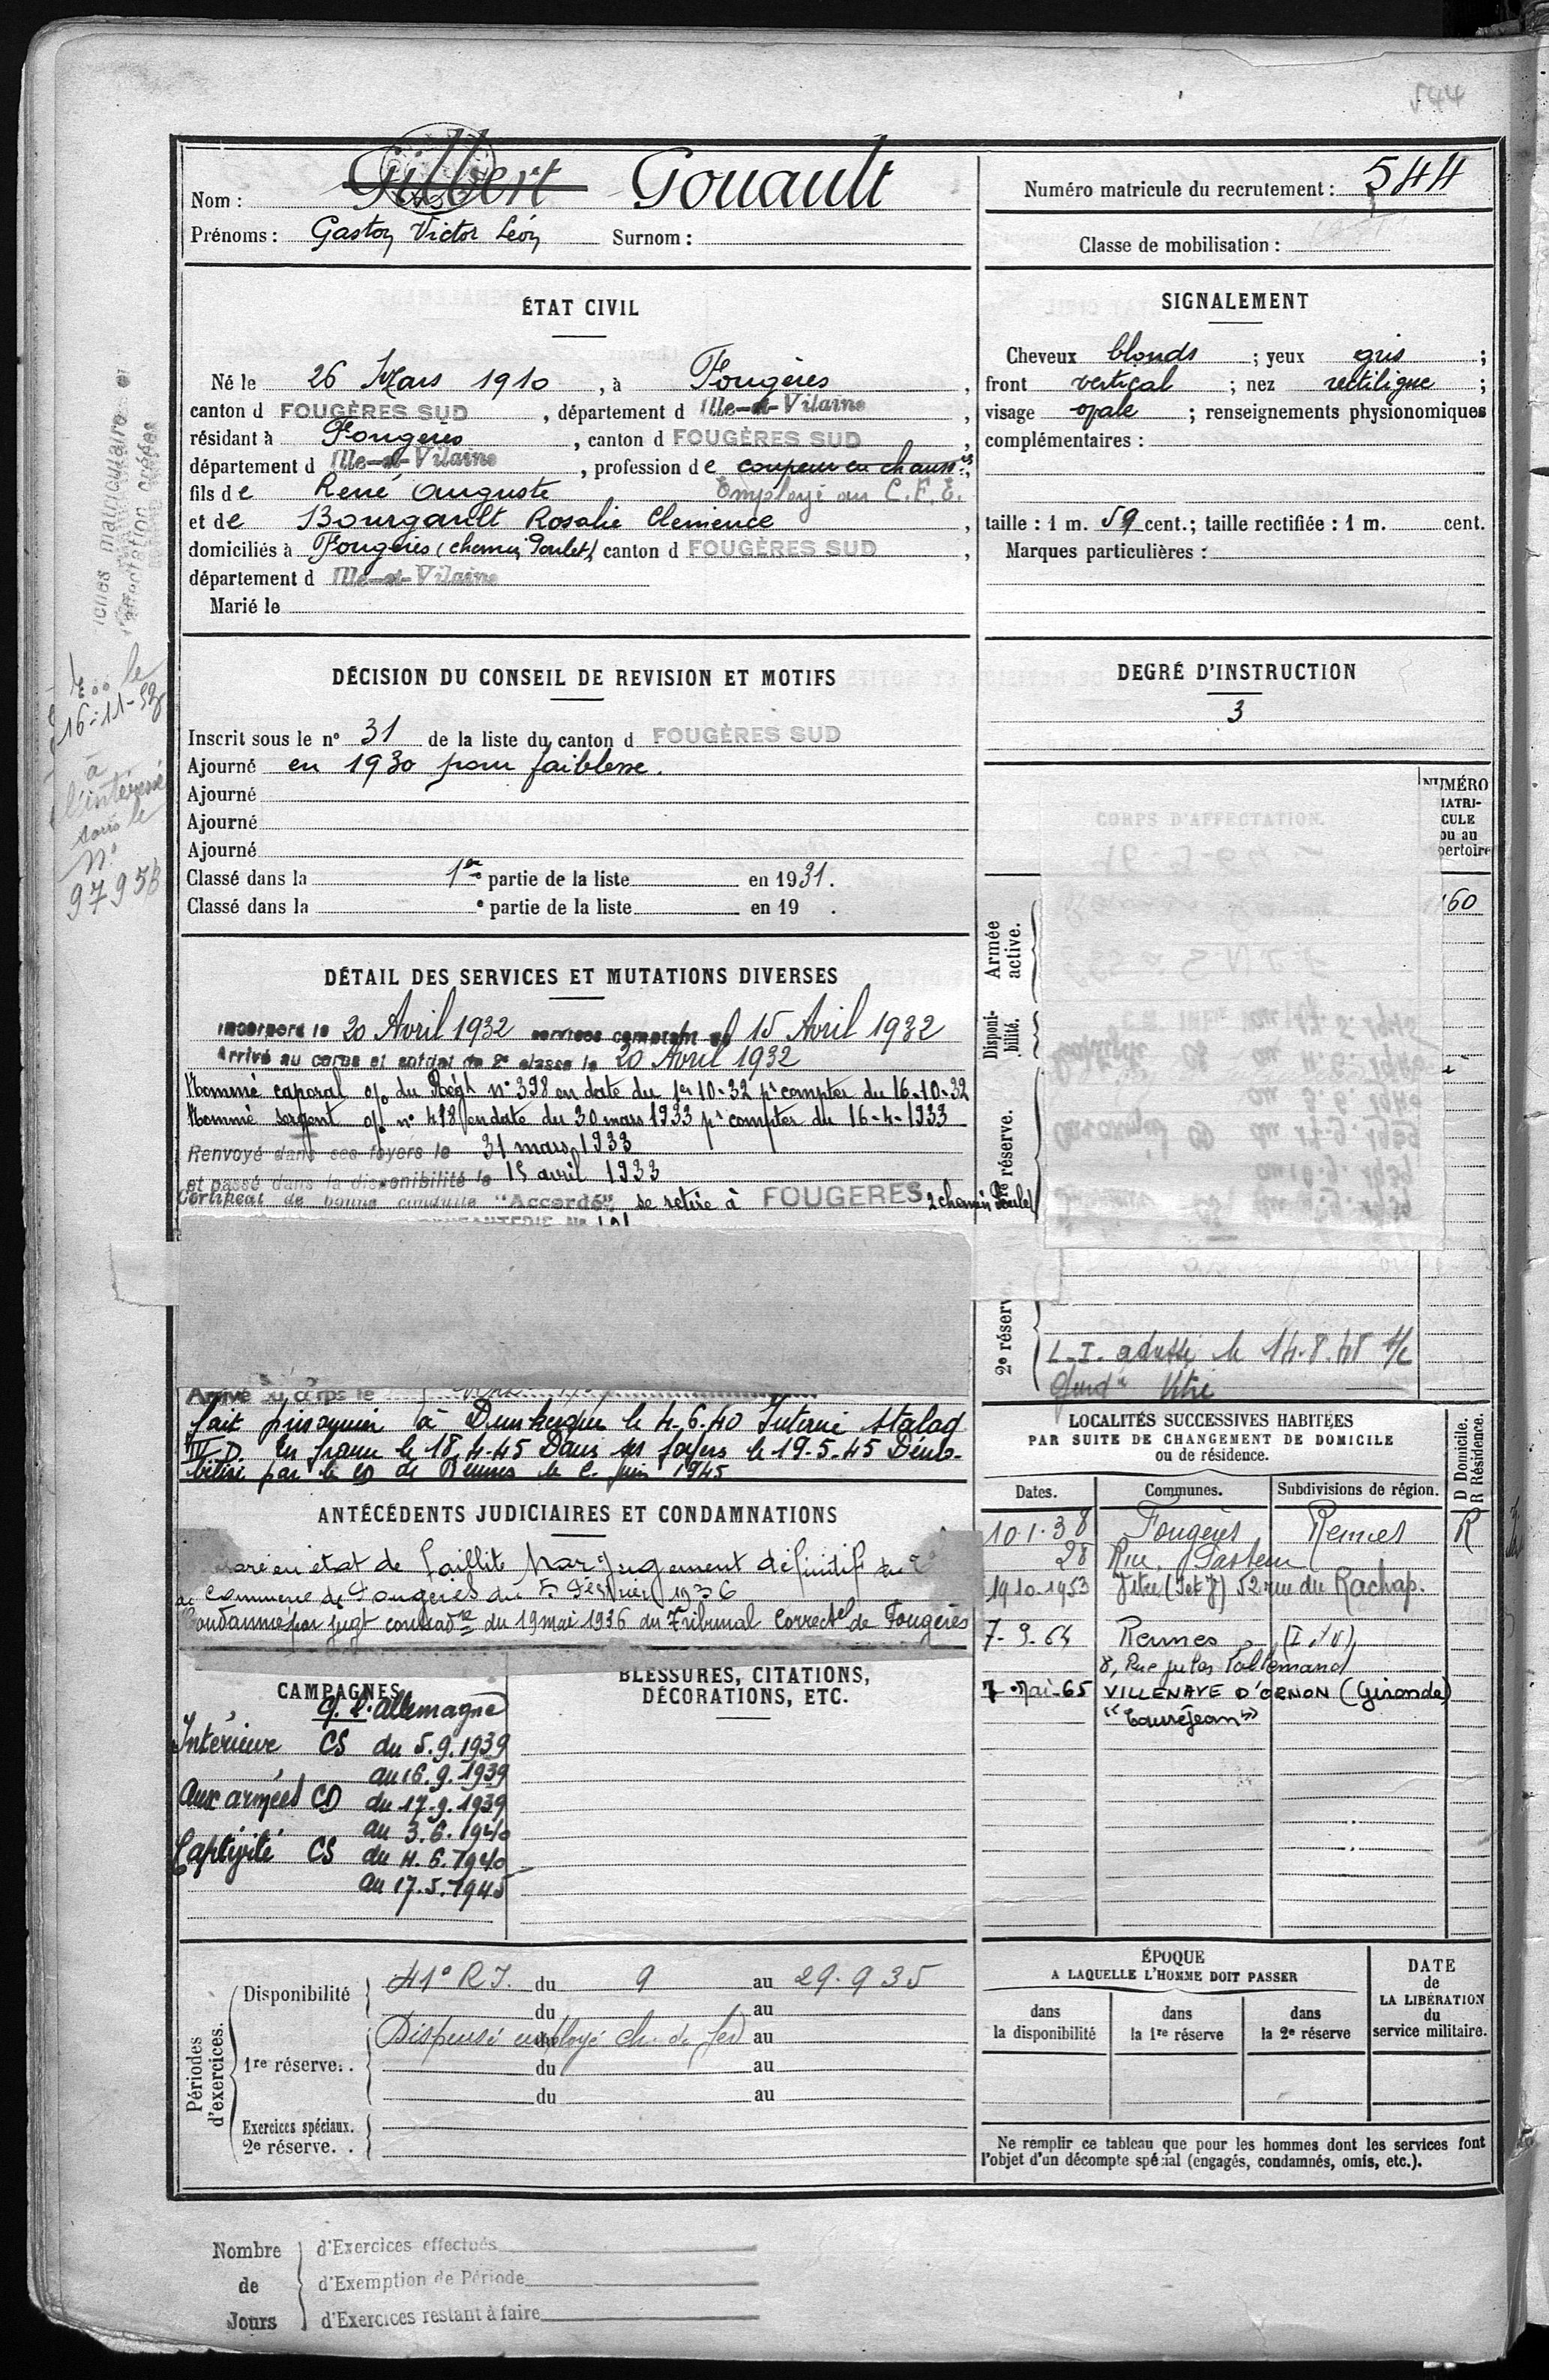 544
Nom : Gilbert Gouault
Prénoms : Gaston Victor Léon Surnom :
Numéro matricule du recrutement : 544
Classe de mobilisation :
ÉTAT CIVIL
Né le 26 Mars 1910, à Fougères,
canton d FOUGÈRES SUD, département d Ille-et-Vilaine,
résidant à Fougères, canton d FOUGÈRES SUD,
département d Ille-et-Vilaine, profession de coupeur en chauss.res,
fils de René Auguste Employé au C.F.E.
et de Bourgault Rosalie Clémence,
domiciliés à Fougères (chemin Poulet), canton d FOUGÈRES SUD,
département d Ille-et-Vilaine
Marié le
SIGNALEMENT
Cheveux blonds ; yeux gris ;
front vertical ; nez rectiligne ;
visage ovale ; renseignements physionomiques
complémentaires :
taille : 1 m. 59 cent.; taille rectifiée : 1 m. cent.
Marques particulières :
le
16-11-53
à
l'intéressé
sous le
N°
9795B
DÉCISION DU CONSEIL DE REVISION ET MOTIFS
Inscrit sous le n° 31 de la liste du canton d FOUGÈRES SUD
Ajourné en 1930 pour faiblesse.
Ajourné
Ajourné
Ajourné
Classé dans la 1re partie de la liste en 1931.
Classé dans la e partie de la liste en 19 .
DEGRÉ D'INSTRUCTION
3
NUMÉRO
MATRI-
CULE
ou au
pertoire
CORPS D'AFFECTATION.
160
Armée active.
Disponibilité.
re réserve.
2e réserv
L.I. adressé le 14.8.48
Vitré
DÉTAIL DES SERVICES ET MUTATIONS DIVERSES
Incorporé le 20 Avril 1932 services comptant du 15 Avril 1932
Arrivé au corps et soldat de 2e classe le 20 Avril 1932
Nommé caporal o/ du Régt n° 398 en date du 1er 10-32 pr compter du 16-10-32
Nommé sergent o/ n° 498 en date du 30 mars 1933 pr compter du 16-4-1933
Renvoyé dans ses foyers le 31 mars 1933
et passé dans la disponibilité le 15 avril 1933
Certificat de bonne conduite "Accordé" se retire à FOUGERES, 2 chemin Poulet
Arrivé au corps le
fait prisonnier à Dunkerque le 4-6-40 Interné stalag
III D. En france le 18-4-45 Dans ses foyers le 19-5-45 Démo-
bilisé par le CD de Rennes le 2 Juin 1945
ANTÉCÉDENTS JUDICIAIRES ET CONDAMNATIONS
en état de faillite par jugement définitif du
de commerce de Fougères du 5 février 1936
Condamné par jugt contradre du 19 mai 1936 du Tribunal Correctel de Fougères
CAMPAGNES
C. l'Allemagne
Intérieur CS du 5.9.1939
au 16.9.1939
Aux armées CD du 17.9.1939
au 3.6.1940
Captivité CS du 4.6.1940
au 17.5.1945
BLESSURES, CITATIONS,
DÉCORATIONS, ETC.
LOCALITÉS SUCCESSIVES HABITÉES
PAR SUITE DE CHANGEMENT DE DOMICILE
ou de résidence.
D Domicile.
R Résidence.
Dates. Communes. Subdivisions de région.
10.1.38 Fougères Rennes R
28 Rue Pasteur
19.10.1953 Vitré (I et V) 52 rue du Rachap.
7-9-64 Rennes (I et V)
8, Rue Jules Vallemand
7-Mai-65 VILLENAVE D'ORNON (Gironde)
"Courréjean"
Périodes d'exercices.
Disponibilité 41° R.I. du 9 au 29.9.35
du au
1re réserve. . Dispensé employé ch. de fer du au
du au
du au
Exercices spéciaux.
2e réserve. .
ÉPOQUE
A LAQUELLE L'HOMME DOIT PASSER
dans la disponibilité
dans la 1re réserve
dans la 2e réserve
DATE
de
LA LIBÉRATION
du
service militaire.
Ne remplir ce tableau que pour les hommes dont les services font
l'objet d'un décompte spécial (engagés, condamnés, omis, etc.).
Nombre de Jours
d'Exercices effectués
d'Exemption de Période
d'Exercices restant à faire